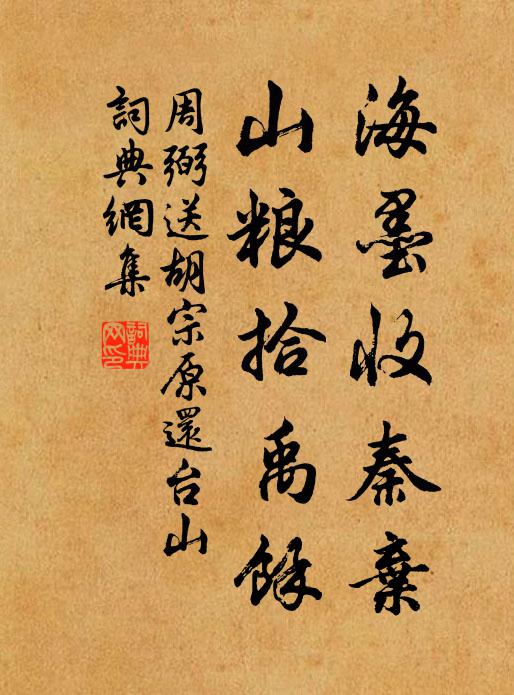 海墨收秦棄
山粮拾禹餘
周弼送胡宗原還台山
詞典網集
詞典
网印